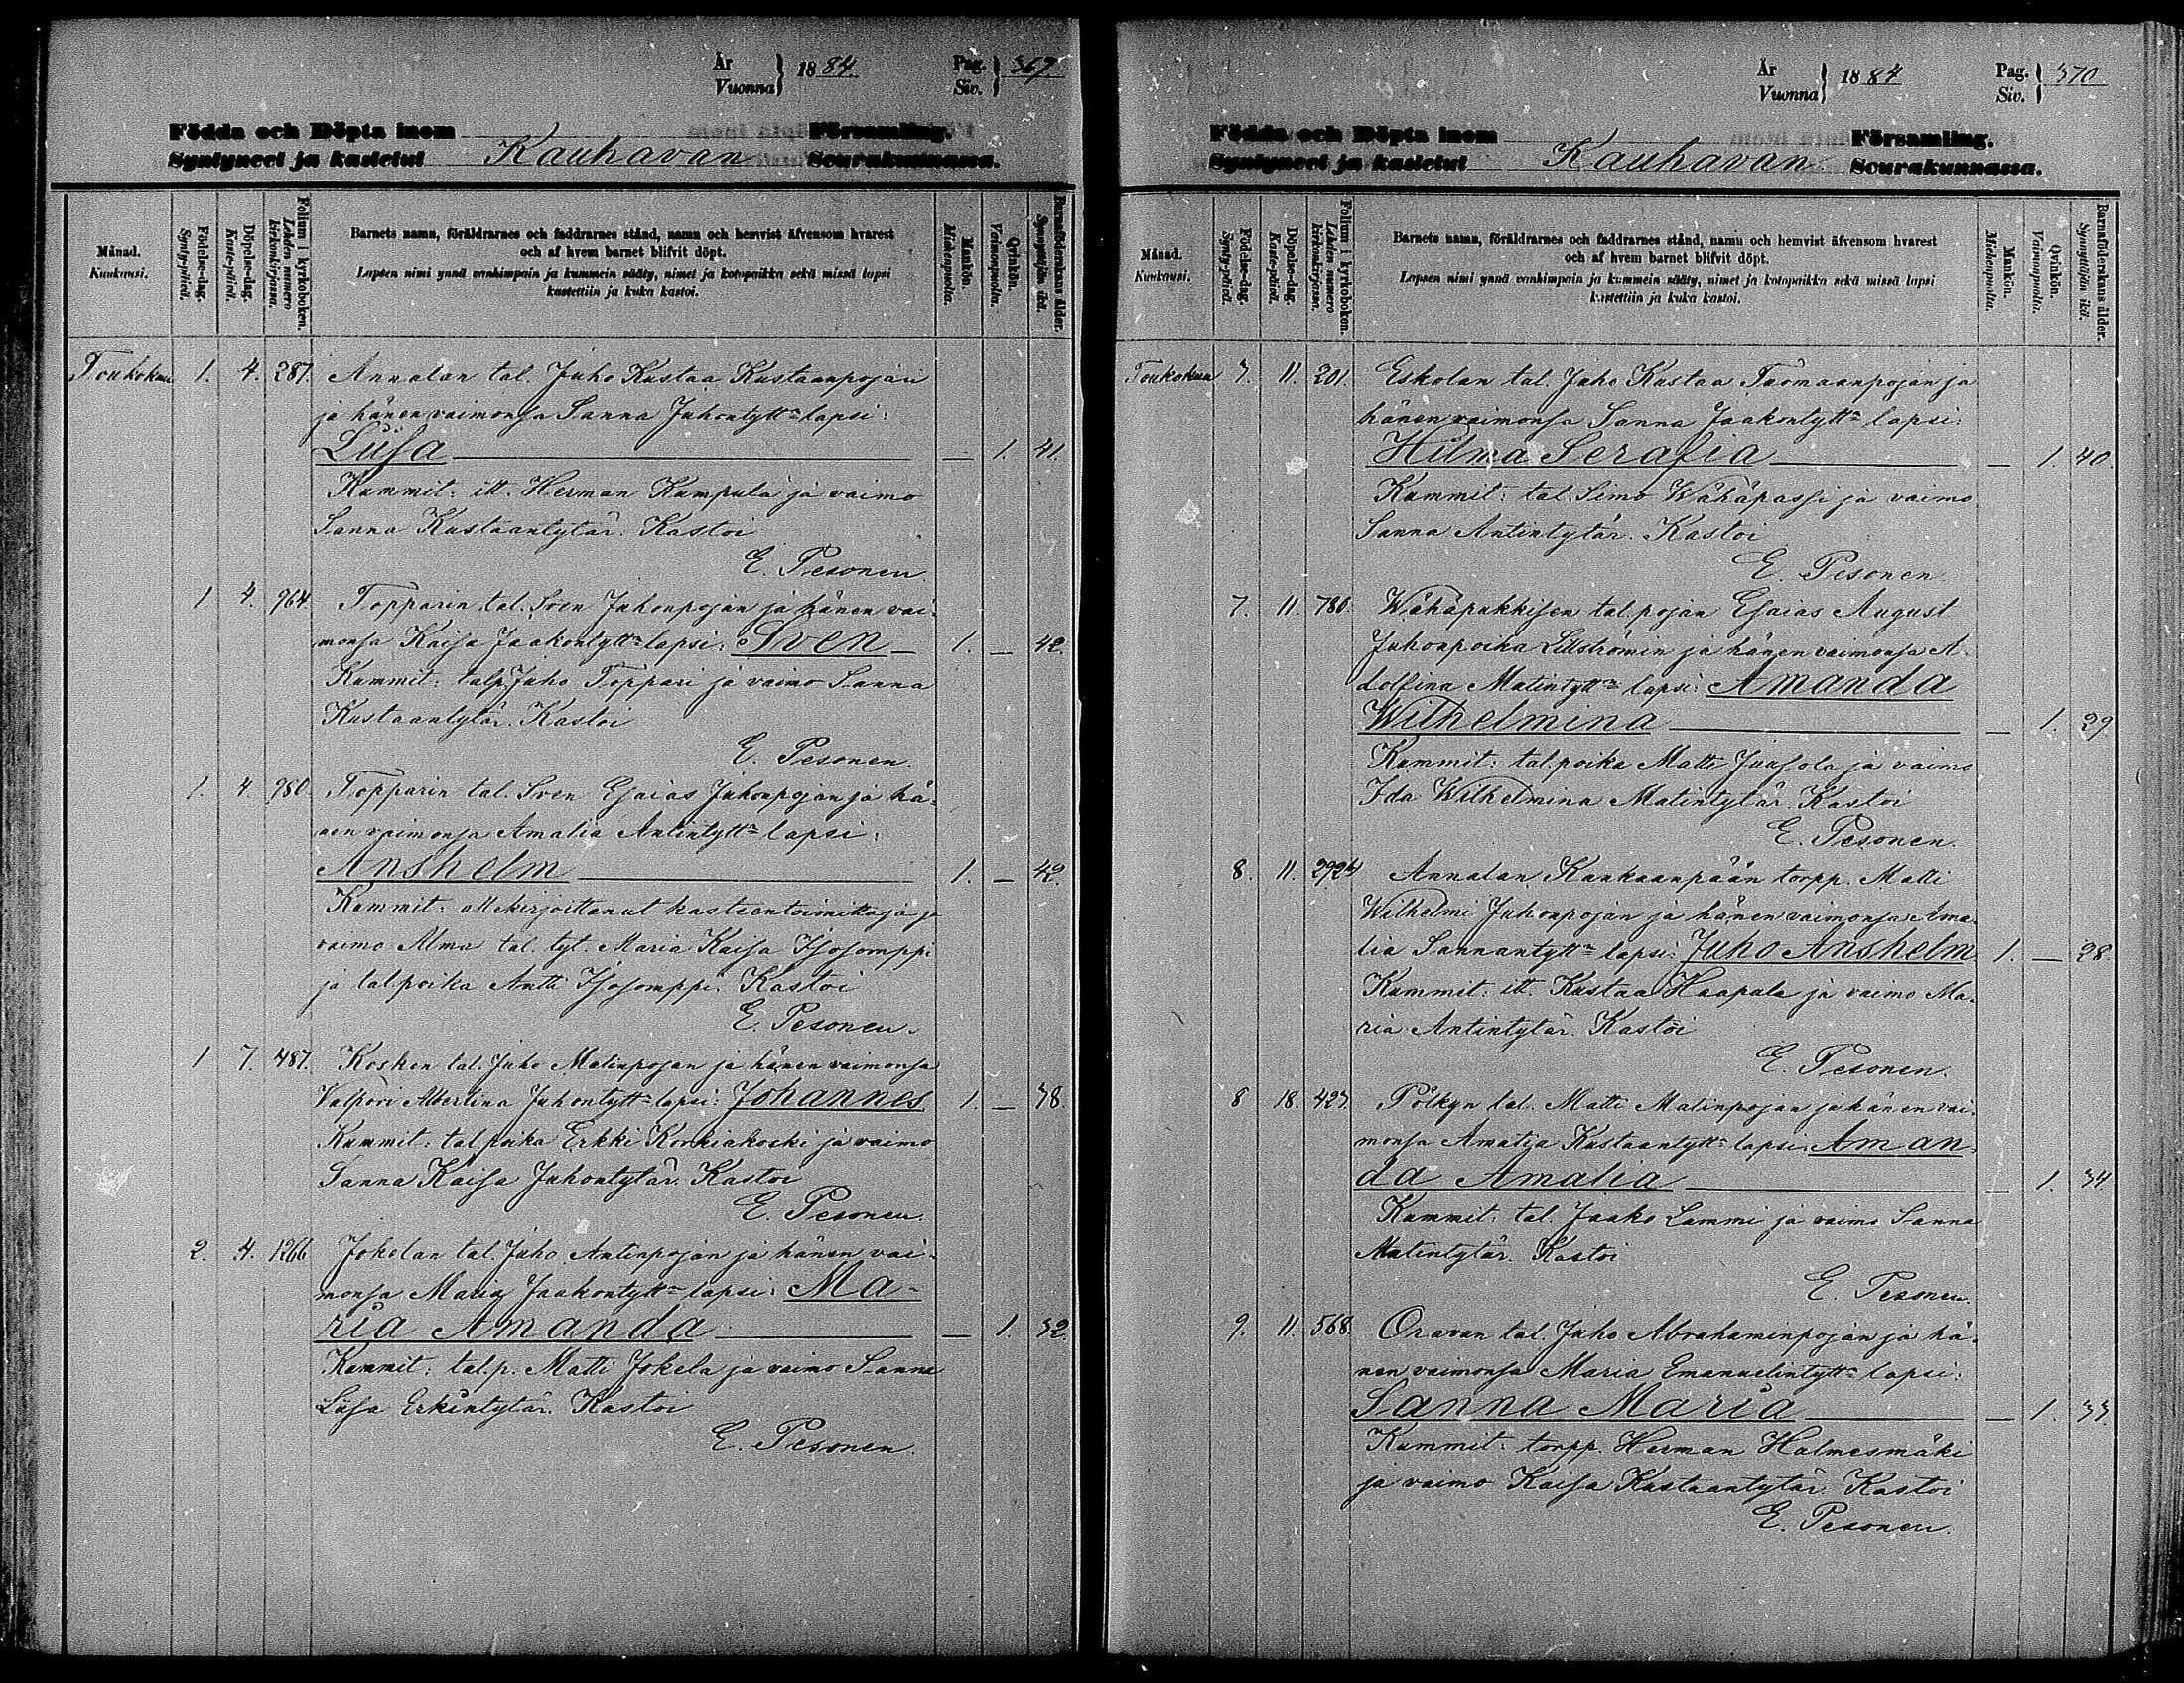 År
Vuonna } 1884.
Pag.
Siv. } 369.
Födda och Döpta inom Församling.
Syntyneet ja kastetut Kauhavan Seurakunnassa.
Månad.
Kuukausi.
Födelse-dag.
Synty-päivä.
Döpelse-dag.
Kaste-päivä.
Folium i kyrkoboken.
Lehden numero
kirkonkirjassa.
Barnets namn, föräldrarnes och faddrarnes stånd, namn och hemvist äfvensom hvarest
och af hvem barnet blifvit döpt.
Lapsen nimi ynnä vanhimpain ja kummein sääty, nimet ja kotopaikka sekä missä lapsi
kastettiin ja kuka kastoi.
Mankön.
Miehenpuolta.
Qvinkön.
Vaimonpuolta.
Barnaföderskans ålder.
Synnyttäjän ikä.
Toukokuu 1. 4. 287. Annalan tal. Juho Kustaa Kustaanpojan
ja hänen vaimonsa Sanna Juhontytt:n lapsi:
Liisa — 1. 41.
Kummit: itt. Herman Kumpula ja vaimo
Sanna Kustaantytär. Kastoi
E. Pesonen.
1 4. 964. Topparin tal. Sven Juhonpojan ja hänen vai-
monsa Kaisa Jaakontytt:n lapsi: Sven 1. — 42.
Kummit: talp. Juho Toppari ja vaimo Sanna
Kustaantytär. Kastoi
E. Pesonen.
1. 4 980. Topparin tal. Sven Esaias Juhonpojan ja hä-
nen vaimonsa Amalia Antintytt:n lapsi:
Anshelm 1. — 42.
Kummit: allekirjoittanut kastentoimittaja ja
vaimo Alma tal. tyt. Maria Kaisa Isosomppi
ja tal.poika Antti Isosomppi. Kastoi
E. Pesonen.
1 7. 487. Kosken tal. Juho Matinpojan ja hänen vaimonsa
Valpori Albertina Juhontytt:n lapsi: Johannes 1. — 38.
Kummit: tal poika Erkki Korkiakoski ja vaimo
Sanna Kaisa Juhontytär. Kastoi
E. Pesonen.
2. 4. 1266 Jokelan tal. Juho Antinpojan ja hänen vai-
monsa Maria Jaakontytt:n lapsi: Ma-
ria Amanda — 1. 32.
Kummit: tal.p. Matti Jokela ja vaimo Sanna
Liisa Erkintytär. Kastoi
E. Pesonen.
År
Vuonna } 1884
Pag.
Siv. } 370
Födda och Döpta inom Församling.
Syntyneet ja kastetut Kauhavan Seurakunnassa.
Månad.
Kuukausi.
Födelse-dag.
Synty-päivä.
Döpelse-dag.
Kaste-päivä.
Folium i kyrkoboken.
Lehden numero
kirkonkirjassa.
Barnets namn, föräldrarnes och faddrarnes stånd, namn och hemvist äfvensom hvarest
och af hvem barnet blifvit döpt.
Lapsen nimi ynnä vanhimpain ja kummein sääty, nimet ja kotopaikka sekä missä lapsi
kastettiin ja kuka kastoi.
Mankön.
Miehenpuolta.
Qvinkön.
Vaimonpuolta.
Barnaföderskans ålder.
Synnyttäjän ikä.
Toukokuu 7. 11. 201. Eskolan tal. Juho Kustaa Tuomaanpojan ja
hänen vaimonsa Sanna Jaakontytt:n lapsi:
Hilma Serafia — 1. 40.
Kummit: tal. Simo Wähäpassi ja vaimo
Sanna Antintytär. Kastoi
E. Pesonen.
7. 11. 780. Wähäpukkisen tal. pojan Esaias August
Juhonpoika Lillströmin ja hänen vaimonsa A-
dolfina Matintytt:n lapsi: Amanda
Wilhelmina — 1. 29
Kummit: tal.poika Matti Juusola ja vaimo
Ida Wilhelmina Matintytär. Kastoi
E. Pesonen.
8. 11. 292b Annalan Kankaanpään torpp. Matti
Wilhelmi Juhonpojan ja hänen vaimonsa Ama-
lia Sannantytt:n lapsi: Juho Anshelm 1. — 28
Kummit: itt. Kustaa Haapala ja vaimo Ma-
ria Antintytär. Kastoi
E. Pesonen.
8 18. 423. Pölkyn tal. Matti Matinpojan ja hänen vai-
monsa Amalia Kustaantytt:n lapsi: Aman-
da Amalia — 1. 34
Kummit: tal. Jaako Lammi ja vaimo Sanna
Matintytär. Kastoi
E. Pesonen.
9. 11. 568. Oravan tal. Juho Abrahaminpojan ja hä-
nen vaimonsa Maria Emanuelintytt:n lapsi:
Sanna Maria — 1. 33.
Kummit: torpp. Herman Halmesmäki
ja vaimo Kaisa Kustaantytär. Kastoi
E. Pesonen.